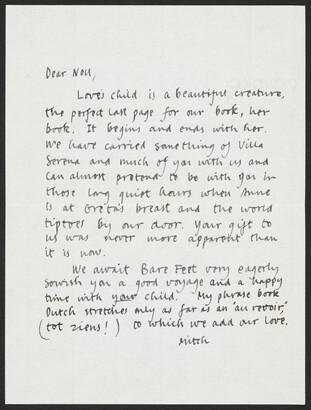 Dear Nell,
Love's child is a beautiful creature,
the perfect last page for our book, her
book. It begins and ends with her.
We have carried something of Villa
Serena and much of you with us and
can almost pretend to be with you in
those long quiet hours when Anne
is at Greta's breast and the world
tiptoes by our door. Your gift to
us was never more apparent than
it is now.
We await Bare Feet very eagerly
so wish you a good voyage and a happy
time with your child. My phrase book
Dutch stretches only as far as an "au revoir,"
(tot ziens!) to which we add our love.
Mitch